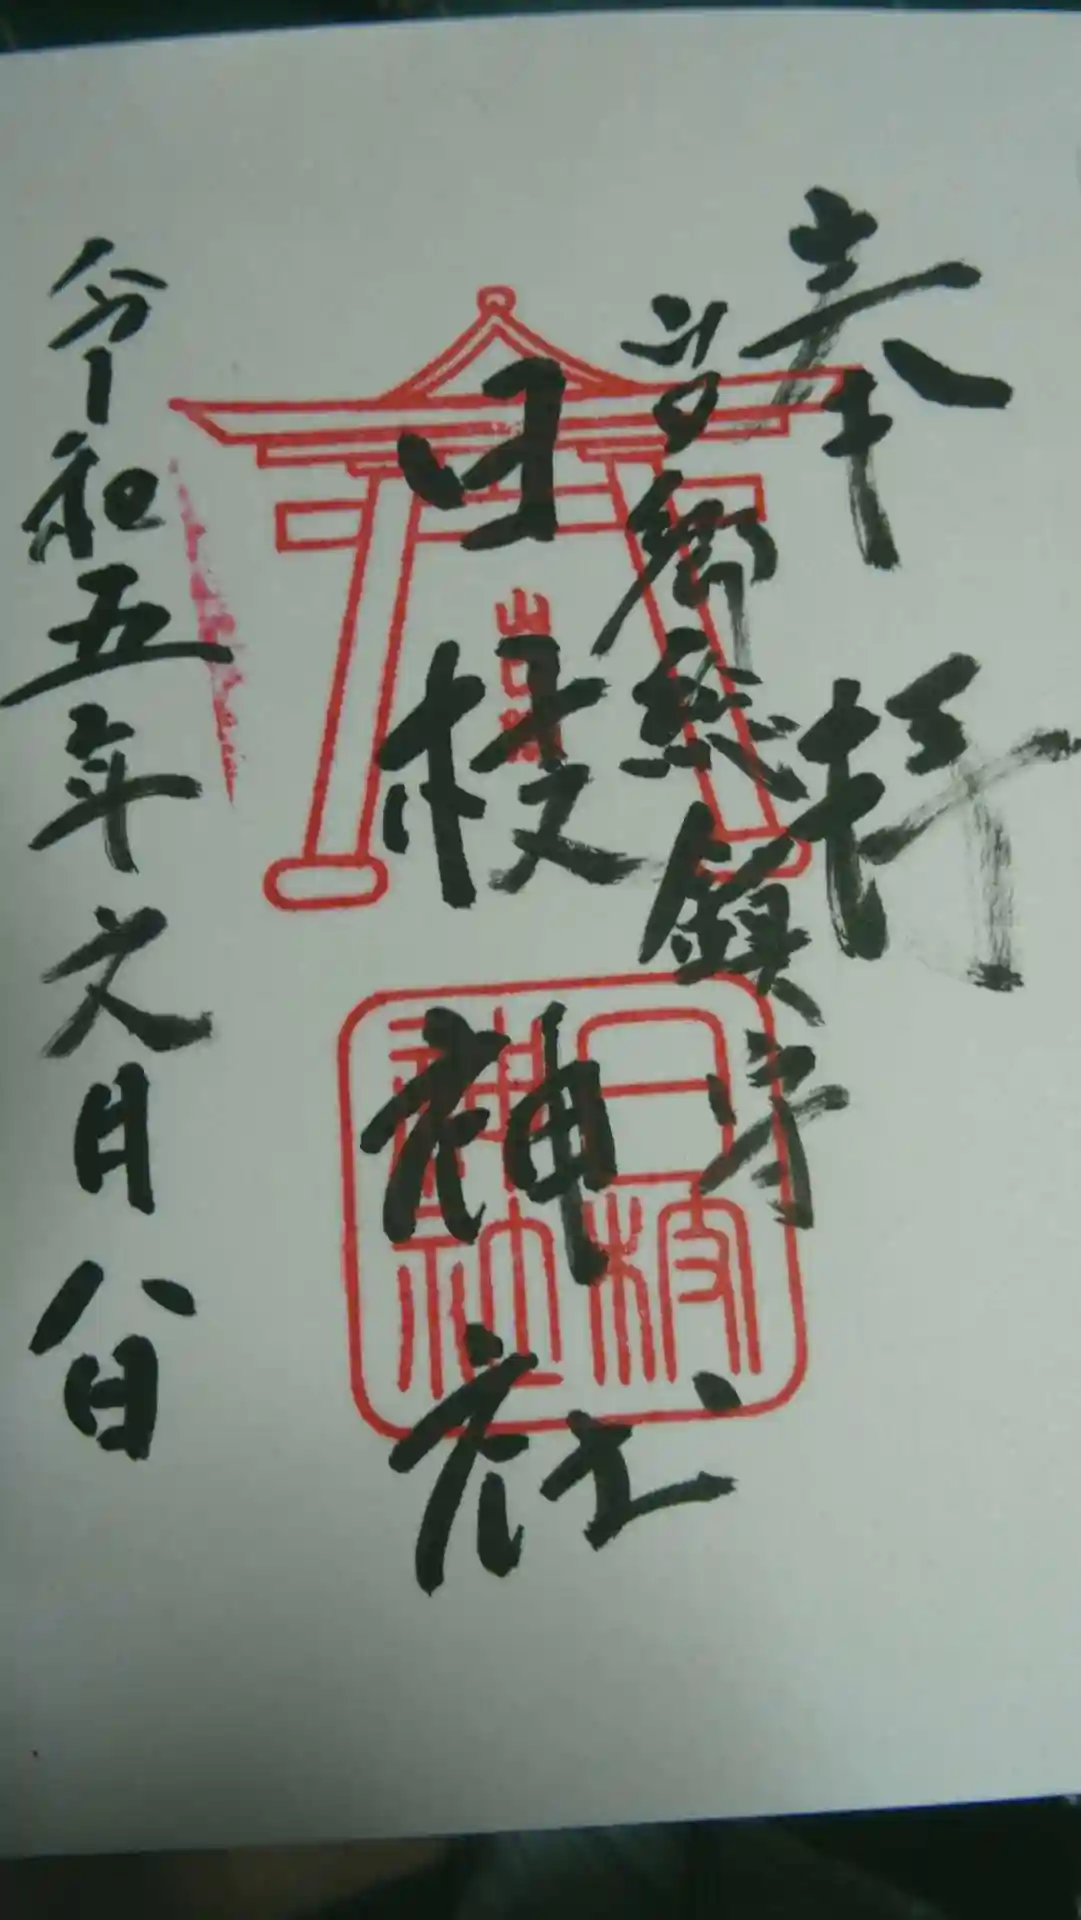 奉拝
郷総鎮守
日枝神社
日枝神社
令和五年文月八日